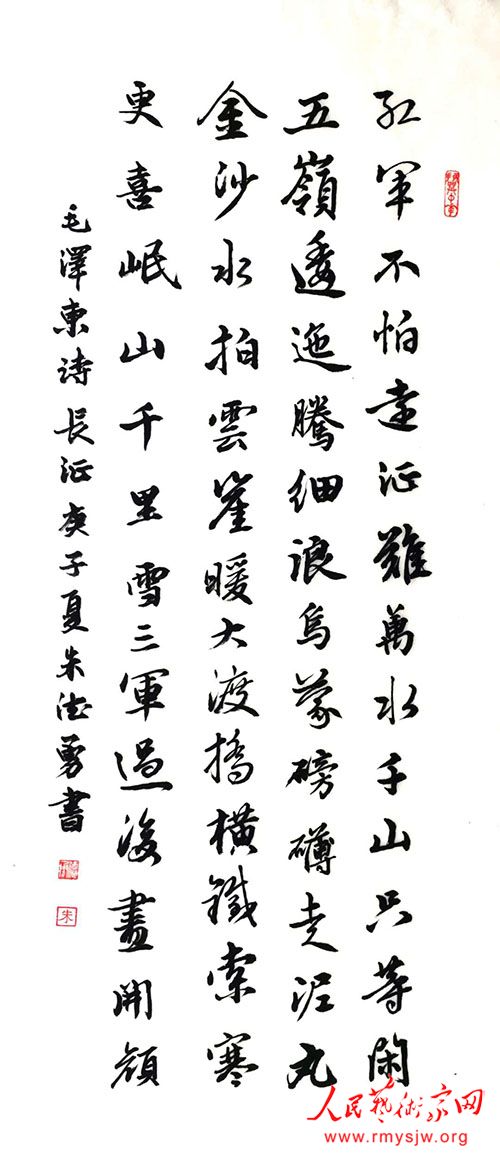 紅軍不怕遠征難萬水千山只等閑
五嶺逶迤騰細浪烏蒙磅礴走泥丸
金沙水拍雲崖暖大渡橋橫鐵索寒
更喜岷山千里雪三軍過後盡開顔
毛澤東詩長征庚子夏朱德勇書
朱
人民藝術家网
www.rmysjw.org